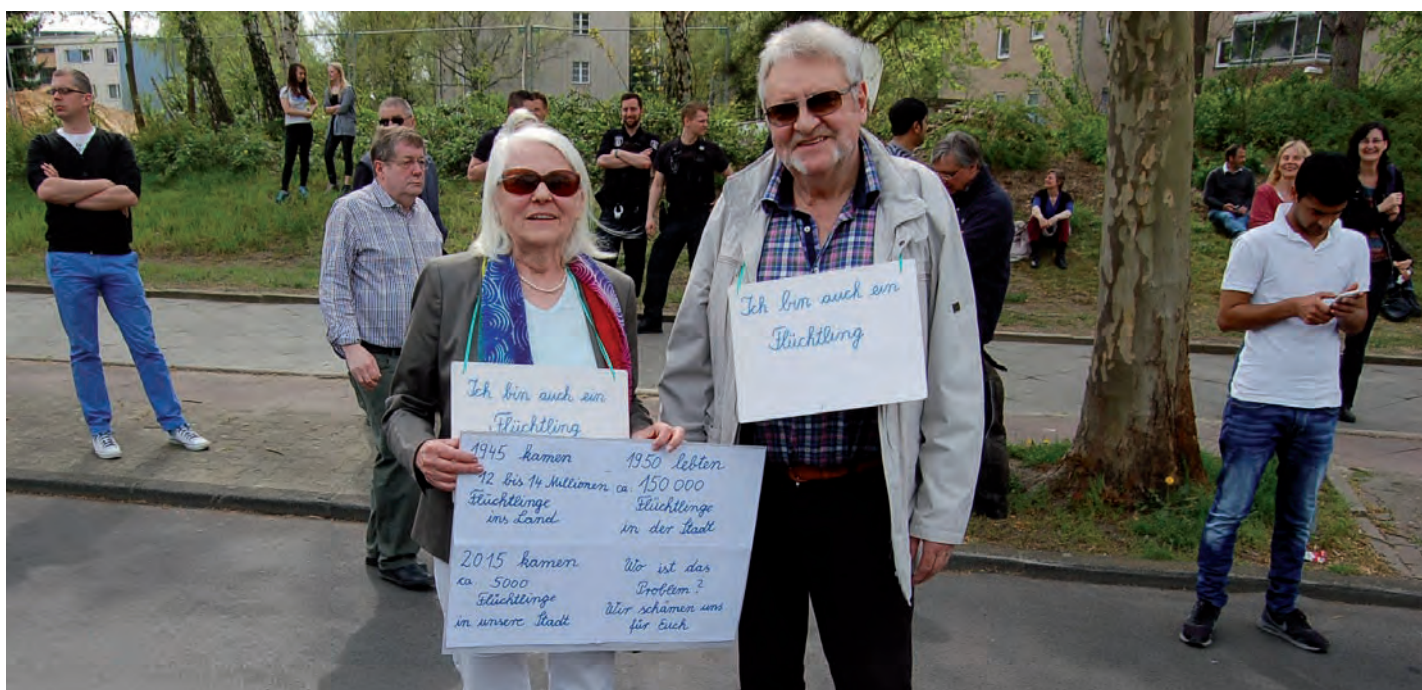 Ich bin auch ein
Flüchtling
Ich bin auch ein
Flüchtling
1945 kamen
12 bis 14 Millionen
Flüchtlinge
ins Land
1950 lebten
ca. 150 000
Flüchtlinge
in der Stadt
2015 kamen
ca. 5000
Flüchtlinge
in unsere Stadt
Wo ist das
Problem?
Wir schämen uns
für Euch